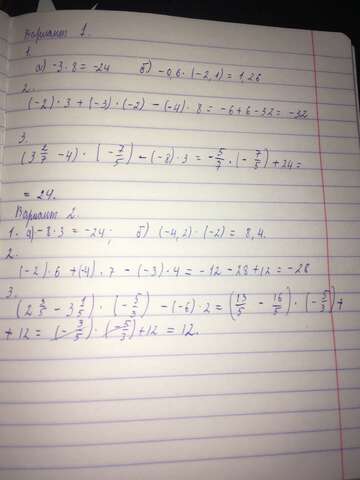 Вариант 1.
1.
а) -3·8 = -24 б) -0,6·(-2,1) = 1,26
2.
(-2)·3 + (-3)·(-2) - (-4)·8 = -6+6-32 = -32
3.
(3 2/7 - 4)·(-7/5) - (-8)·3 = -5/7·(-7/5) + 24 =
= 24.
Вариант 2.
1. а) -8·3 = -24; б) (-4,2)·(-2) = 8,4.
2.
(-2)·6 + (-4)·7 - (-3)·4 = -12-28+12 = -28
3.
(2 3/5 - 3 1/5)·(-5/3) - (-6)·2 = (13/5 - 16/5)·(-5/3) +
+ 12 = (-3/5)·(-5/3) + 12 = 12.